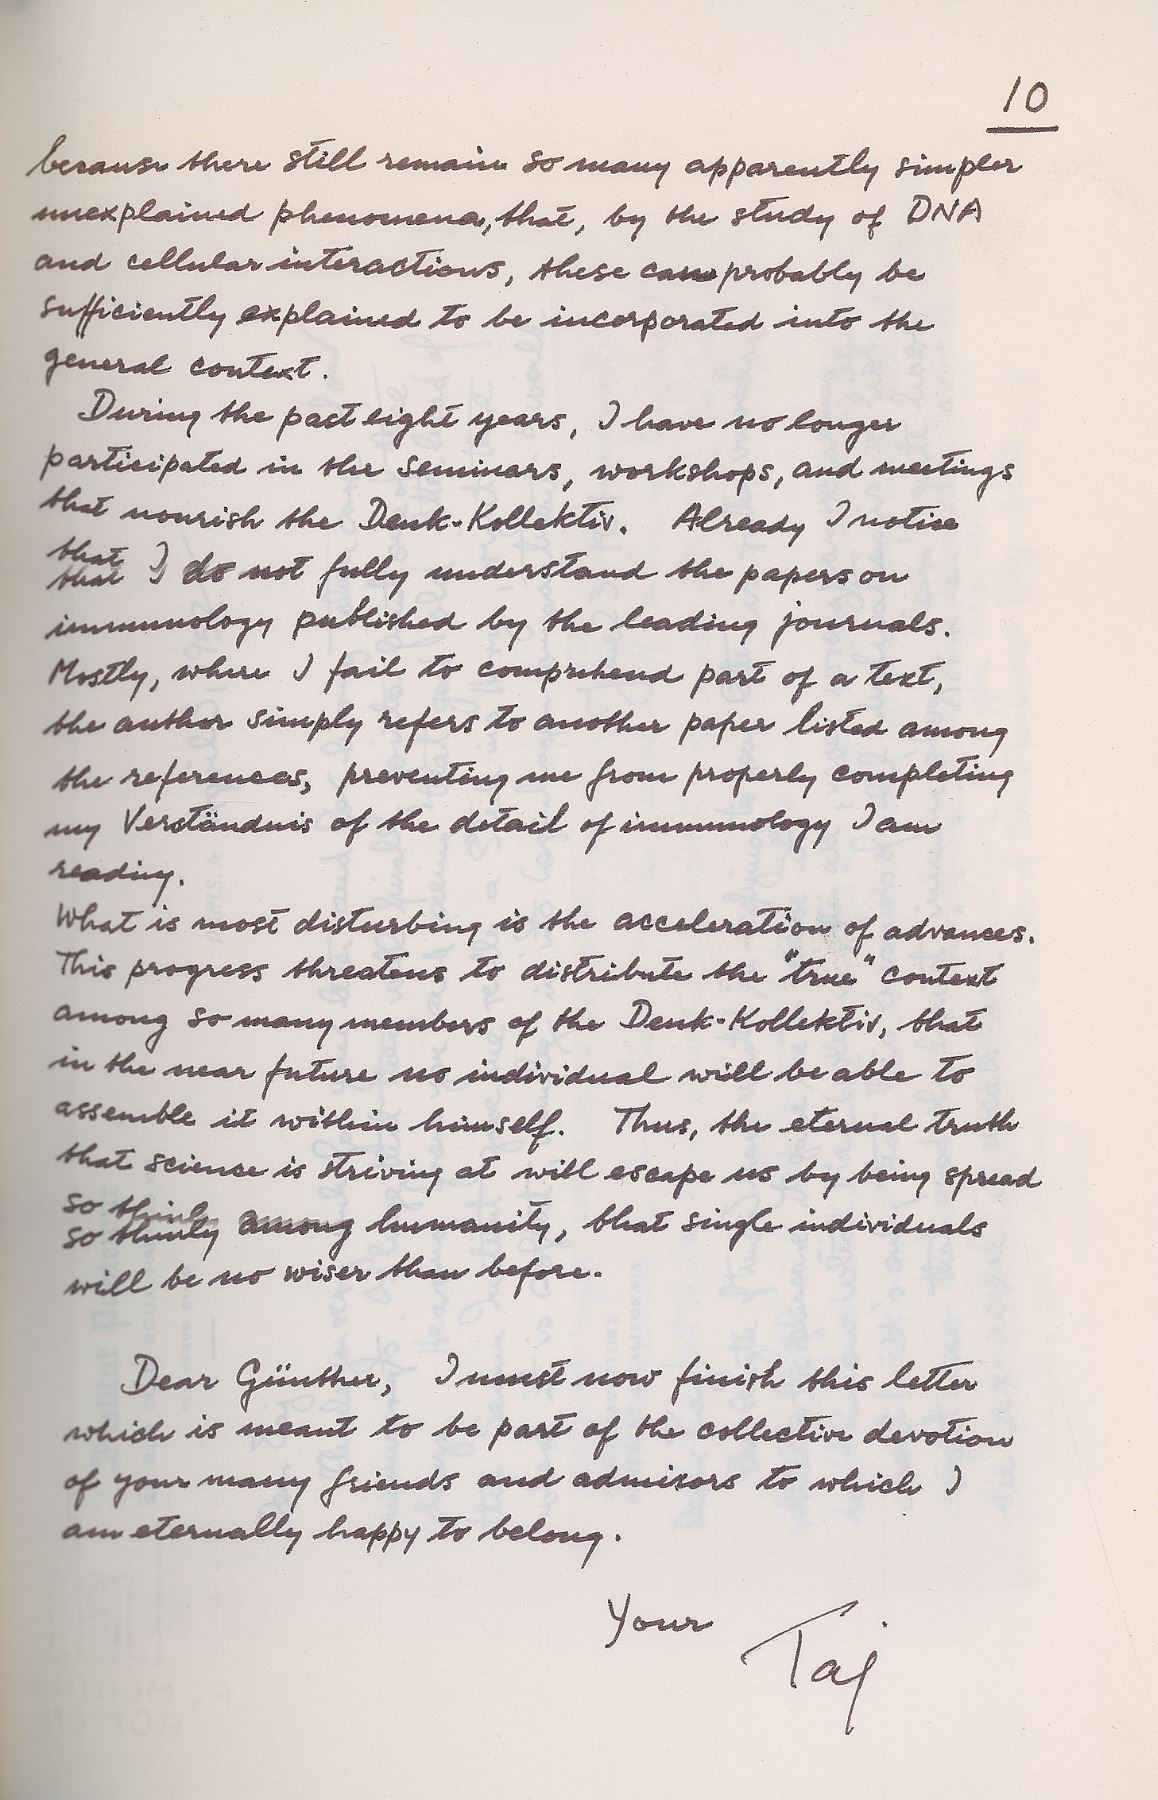 10
because there still remain so many apparently simpler
unexplained phenomena, that, by the study of DNA
and cellular interactions, these can probably be
sufficiently explained to be incorporated into the
general context.
During the past eight years, I have no longer
participated in the seminars, workshops, and meetings
that nourish the Denk-Kollektiv. Already I notice
that
that I do not fully understand the papers on
immunology published by the leading journals.
Mostly, where I fail to comprehend part of a text,
the author simply refers to another paper listed among
the references, preventing me from properly completing
my Verständnis of the detail of immunology I am
reading.
What is most disturbing is the acceleration of advances.
This progress threatens to distribute the "true" context
among so many members of the Denk-Kollektiv, that
in the near future no individual will be able to
assemble it within himself. Thus, the eternal truth
that science is striving at will escape us by being spread
so thinly
so thinly among humanity, that single individuals
will be no wiser than before.
Dear Günther, I must now finish this letter
which is meant to be part of the collective devotion
of your many friends and admirors to which I
am eternally happy to belong.
Your
Taj